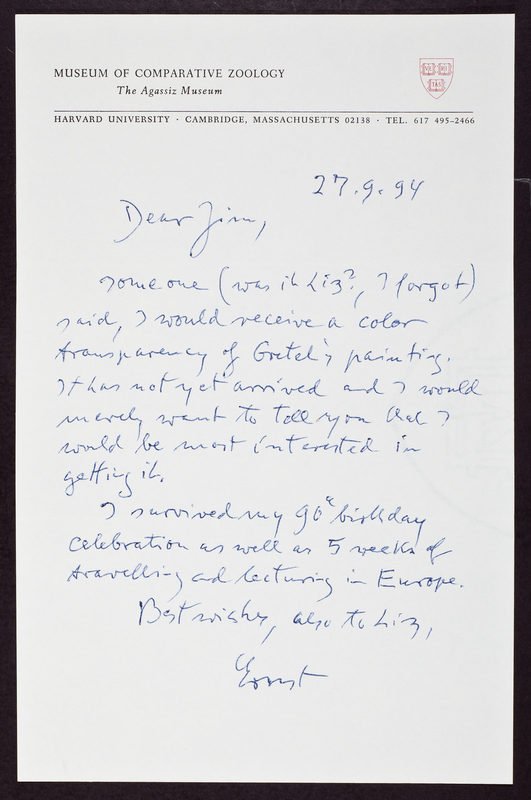 MUSEUM OF COMPARATIVE ZOOLOGY
The Agassiz Museum
VE RI TAS
HARVARD UNIVERSITY · CAMBRIDGE, MASSACHUSETTS 02138 · TEL. 617 495-2466
27.9.94
Dear Jim,
Someone (was it Liz?, I forgot)
said, I would receive a color
transparency of Gretel's painting.
It has not yet arrived and I would
merely want to tell you that I
would be most interested in
getting it.
I survived my 90th birthday
celebration as well as 5 weeks of
travelling and lecturing in Europe.
Best wishes, also to Liz,
Ernst